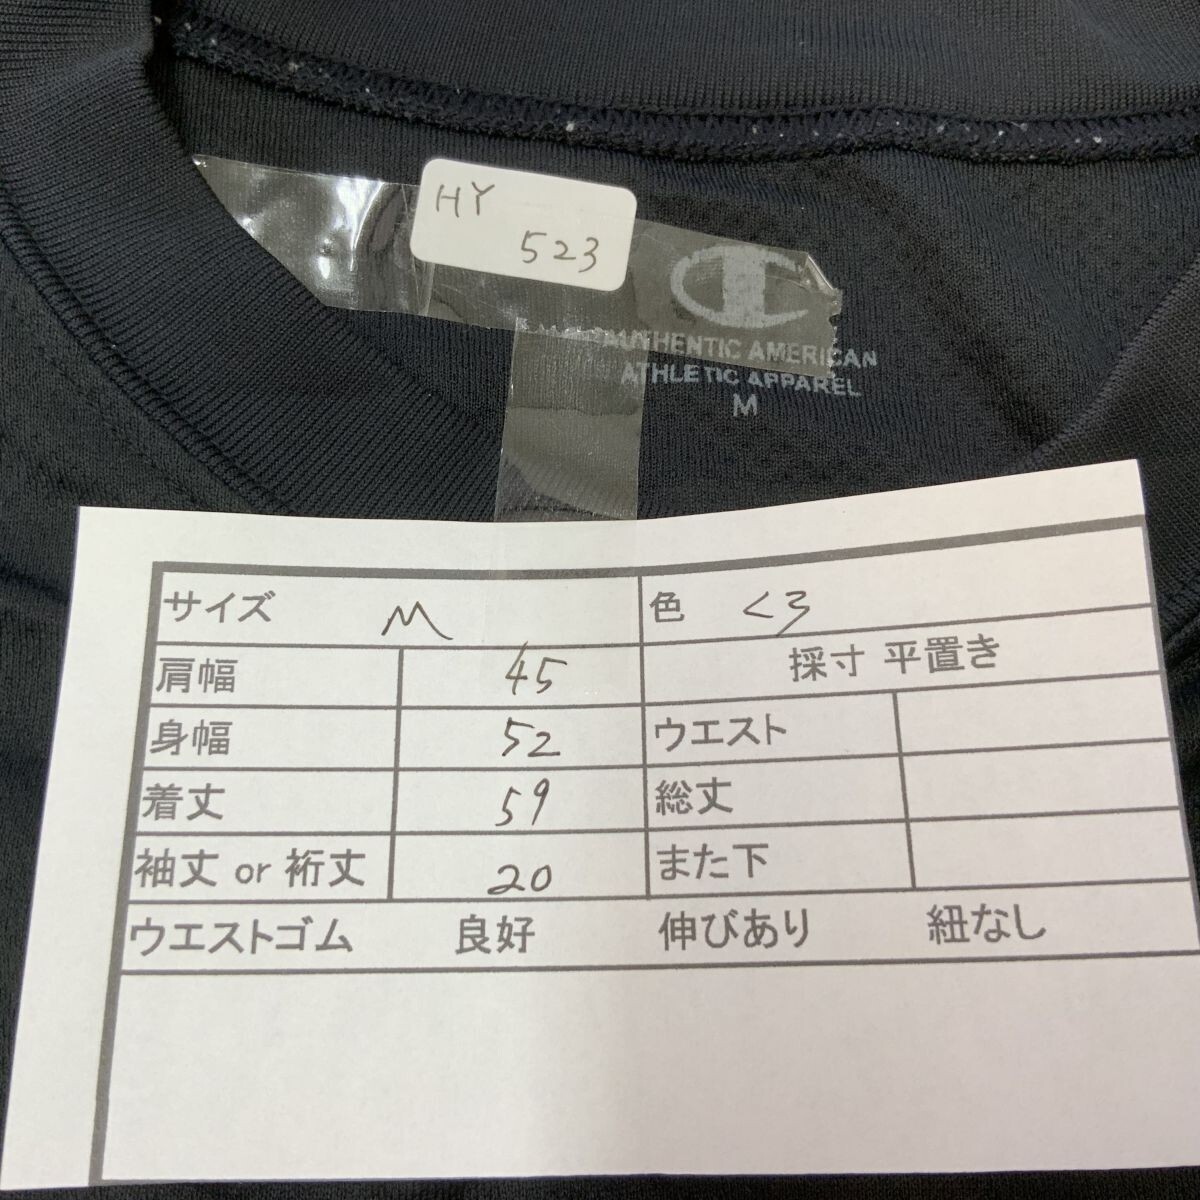 HY
523
AUTHENTIC AMERICAN
ATHLETIC APPAREL
M
サイズ M 色 くろ
肩幅 45 採寸 平置き
身幅 52 ウエスト
着丈 59 総丈
袖丈 or 裄丈 20 また下
ウエストゴム 良好 伸びあり 紐なし